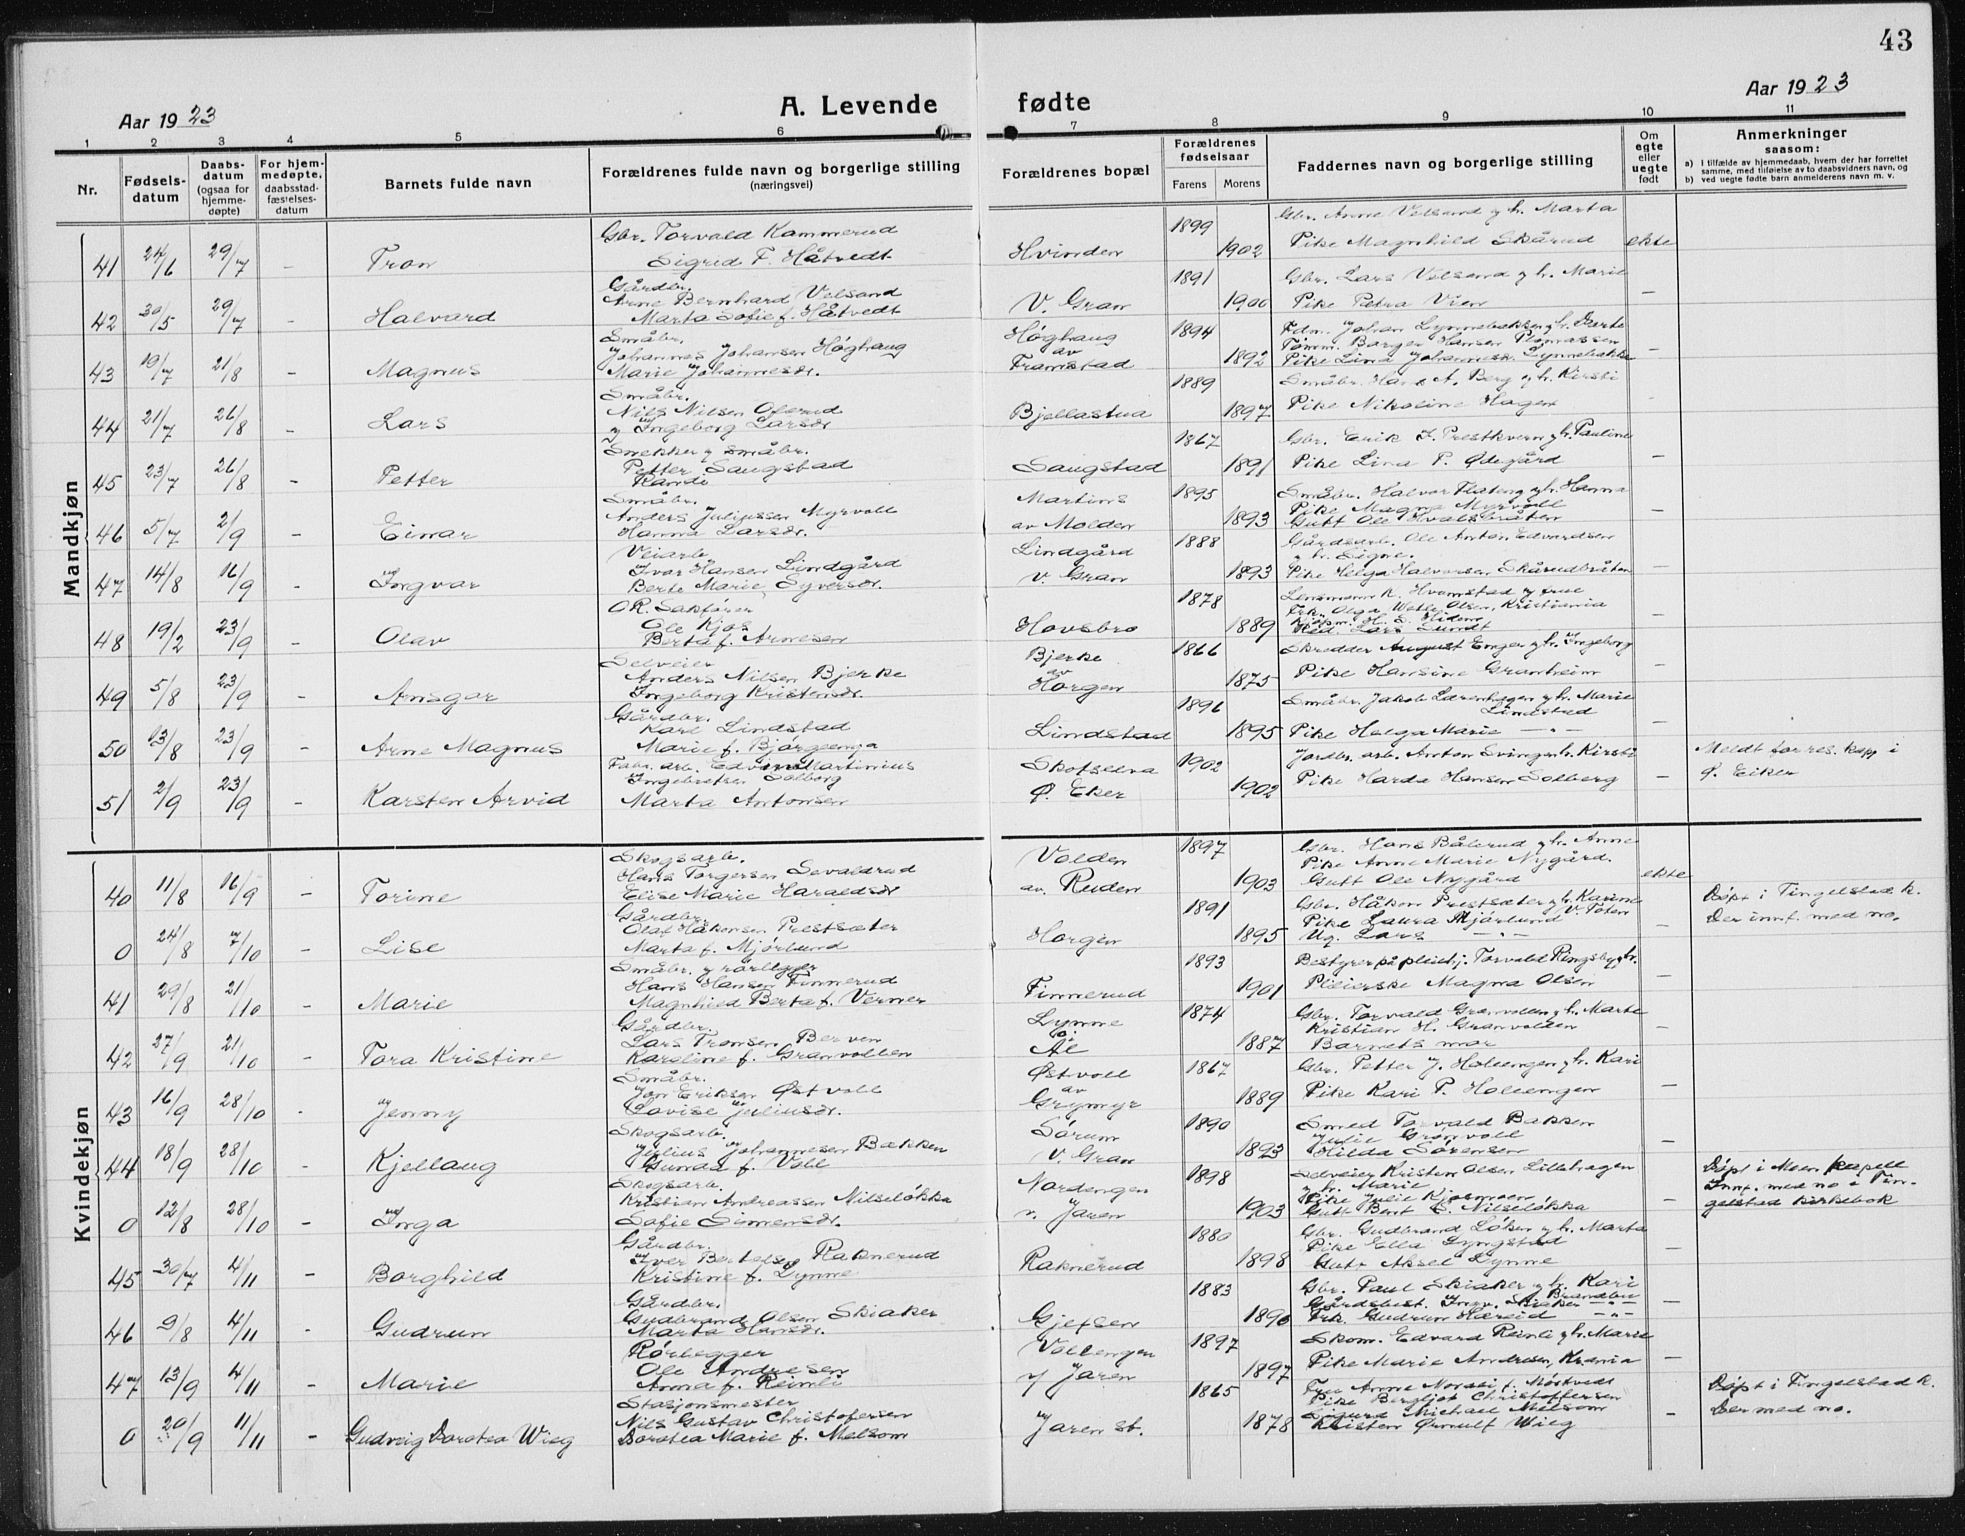 43
Aar 1923 A. Levende fødte Aar 1923
1 2 3 4 5 6 7 8 9 10 11
Nr. Fødsels-datum Daabs-datum (ogsaa for hjemme-døpte) For hjem-medøpte, daabsstad-fæstelses-datum Barnets fulde navn Forældrenes fulde navn og borgerlige stilling (næringsvei) Forældrenes bopæl Forældrenes fødselsaar Farens Morens Faddernes navn og borgerlige stilling Om egte eller uegte født Anmerkninger saasom:
a) i tilfælde av hjemmedaab, hvem der har forrettet samme, med tilføielse av to daabsvidners navn, og
b) ved uegte fødte barn anmelderens navn m. v.
Mandkjøn
Gbr. Torvald Kammerud 1899 Gbr. Arne Velsand g h. Marta
41 24/6 29/7 - Tron Sigrid F. Håtvedt Hvinden 1902 Pike Magnhild Skårud ekte
Gårdbr. 1891 Gbr. Lars Velsand g h. Marie
Arne Bernhard Velsand
42 30/5 29/7 - Halvard Marta Sofie f. Håtvedt V. Gran 1900 Pike Petra Vien -
Småbr. Høghaug 1894 Fdm. Johan Lynnebakken g h. Marte
Johannes Johansen Høghaug av Tømm. Borger Hansen Thomassen
43 19/7 21/8 - Magnus Marie Johannesdr. Framstad 1892 Pike Lina Johannesdr. Lynnebakke -
Småbr. 1889 Småbr. Hans A. Berg g h. Kirsti
Nils Nilsen Olerud
44 21/7 26/8 - Lars g Ingeborg Larsdr Bjellastua 1897 Pike Nikoline Hagen
Snekker g småbr. 1867 Gbr. Erik J. Prestkvern g h. Pauline
Petter Saugstad
45 23/7 26/8 - Petter Randi Saugstad 1891 Pike Lina P. Ødegård -
Småbr. Martins 1895 Småbr. Halvor Flateng g h. Hanna
Anders Juliussen Myrvoll Pike Magna Myrvoll
46 5/7 2/9 - Einar Hanna Larsdr. av Molden 1893 Gutt Ole Hvalsbråten -
Veiarb. Lindgård 1888 Gårdsarb. Ole Anton Edvardsen
Ivar Hansen Lindgård g h. Signe.
47 14/8 16/9 - Ingvar Berte Marie Syversdr. v. Gran 1893 Pike Helga Halvorsen Skårudbråten -
O.R. Sakfører 1878 Lensmann K. Hvamstad g frue
Ole Kjos Frk. Olga Wetle Olsen, Kristiania
48 19/2 23/9 - Olav Berta f. Arnesen Hovsbro 1889 Red. Lars Lundt
Selveier Bjerke 1866 Skredder August Enger g h. Ingeborg
Anders Nilsen Bjerke av
49 5/8 23/9 - Ansgar Ingeborg Kristensdr. Horgen 1875 Pike Hansine Granheim -
Gårdbr. 1896 Småbr. Jakob Lærenhagen g h. Marie
Kare Lindstad Lindstad
50 13/8 23/9 - Arne Magnus Marie f. Bjørgeenga Lindstad 1895 Pike Helga Marie -"- -
Fabr. arb. Edvin Martinius Skotselva 1902 Jordbr. arb. Anton Svingen h. Kirsti Meldt for res. kap. i
Ingebretsen Solborg
51 2/9 23/9 - Karsten Arvid Marta Antonsen Ø. Eker 1902 Pike Harda Hansen Solberg - Ø. Eiker
Kvindekjøn
Skogsarb. Volden 1897 Gbr. Hans Bålerud g h. Anne
Hans Torgersen Sevaldrud Pike Anne Marie Nygård.
40 11/8 16/9 - Torine Elise Marie Haraldsdr av. Ruden 1903 Gutt Ole Nygård ekte
Gårdbr. 1891 Gbr. Håkon Prestsæter g h. Karine Døpt i Tingelstad k.
Olaf Håkonsen Prestsæter Pike Laura Mjørlund V. Toten Der innf. med no.
0 24/8 7/10 - Lise Marta f. Mjørlund Horgen 1895 Ug. Lars -"- -
Småbr. g rørlegger 1893 Bestyrer på pleiehj. Torvald Ringsby g h.
Hans Hansen Finnerud
41 29/8 21/10 - Marie Magnhild Berta f. Verner Finnerud 1901 Pleierske Magna Olsen -
Gårdbr. Lynne 1874 Gbr. Torvald Granvolden g h. Marte
Lars Tronsen Berven Kristian H. Granvolden
42 27/9 21/10 - Tora Kristine Karoline f. Granvollen Ål 1887 Barnets mor -
Småbr. Østvoll 1867 Gbr. Petter J. Holeengen g h. Kari
Jon Eriksen Østvoll av
43 16/9 28/10 - Jenny Lovise Juliusdr. Grymyr 1889 Pike Kari P. Holeengen -
Skogsarb. Sørum 1890 Smed Torvald Bakken
Julius Johannesen Bakken Julie Grønvoll
44 18/9 28/10 - Kjellaug Gunda f. Voll V. Gran 1893 Hilda Sørensen -
Skogsarb. Nordengen 1898 Selveier Kristen Olsen Lillehagen Døpt i Moen kapell
Kristian Andreassen Nilseløkka g h. Marie Innf. med no i Tin-
0 12/8 28/10 - Inga Sofie Simensdr. v. Jaren 1903 Gutt Bent S. Nilseløkka - gelstad kirkebok
Gårdbr. 1880 Gbr. Gudbrand Løken g h. Marta
Iver Bertelsen Raknerud Pike Ella Lyngstad
45 30/7 4/11 - Borghild Kristine f. Lynne Raknerud 1898 Gutt Aksel Lynne -
Gårdbr. 1883 Gbr. Paul Skiaker g h. Kari
Gudbrand Olsen Skiaker Gårdsbest. Ingv. Skiaker -"-
46 9/8 4/11 - Gudrun Marta Hansdr. Gjefsen 1890 Frk. Gudrun -"- -
Rørlegger Vollengen 1897 Skom. Edvard Reinli g h. Marie
Ole Andresen
47 13/9 4/11 - Marie Anna f. Reinli v/ Jaren 1897 Pike Marie Andresen, Krania -
Stasjonsmester 1865 Fru Anne Norsli f. Mørtvedt Døpt i Tingelstad k.
Nils Gustav Christofersen Pike Bergljot Christoffersen Der med no.
0 20/9 11/11 - Gudvig Dorotea Wieg Dorotea Marie f. Melsom Jaren st. 1878 Sigurd Michael Melsom
Kristen Ørnulf Wieg